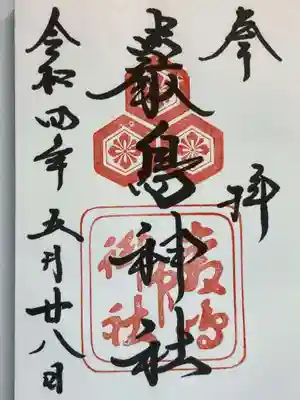 奉拝
嚴島神社
令和四年五月廿八日
嚴島
神社